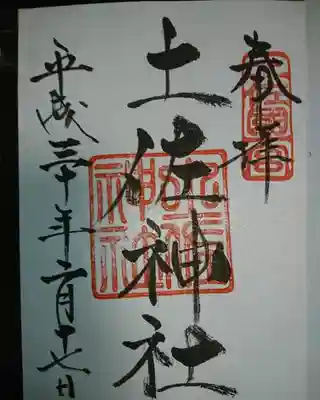 奉拝
土佐神社
土佐神社
平成三十年二月十七日